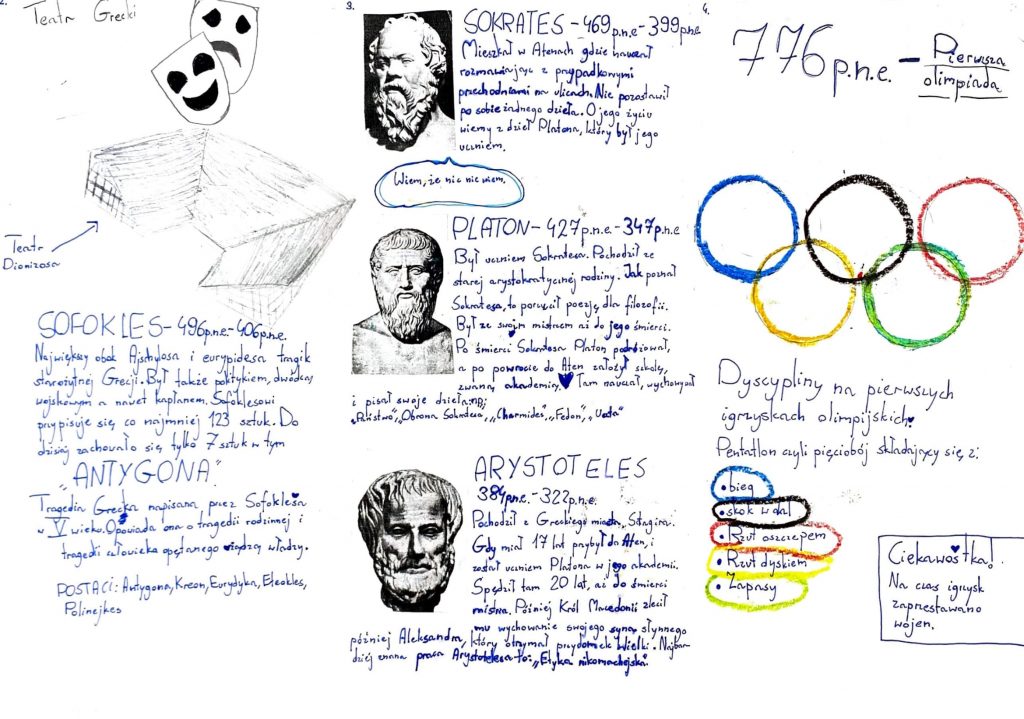 2.
Teatr Grecki
Teatr
Dionizosa
SOFOKLES - 496p.n.e.-406p.n.e.
Największy obok Ajschylosa i eurypidesa tragik
starożytnej Grecji. Był także politykiem, dwódcą
wojskowym a nawet kapłanem. Sofoklesowi
przypisuje się co najmniej 123 sztuk. Do
dzisiaj zachowało się tylko 7 sztuk w tym
"ANTYGONA".
Tragedia Grecka napisana przez Sofoklesa
w V wieku. Opowiada ona o tragedii rodzinnej i
tragedii człowieka opętanego rządzą władzy.
POSTACI: Antygona, Kreon, Eurydyka, Eteokles,
Polinejkes
3.
SOKRATES - 469p.n.e - 399p.n.e
Mieszkał w Atenach gdzie nauczał
rozmawiając z przypadkowymi
przechodniami na ulicach. Nie pozostawił
po sobie żadnego dzieła. O jego życiu
wiemy z dzieł Platona, który był jego
uczniem.
Wiem, że nic nie wiem.
PLATON - 427p.n.e - 347p.n.e
Był uczniem Sokratesa. Pochodził ze
starej arystokratycznej rodziny. Jak poznał
Sokratesa, to porzucił poezję dla filozofii.
Był ze swoim mistrzem aż do jego śmierci.
Po śmierci Sokratesa Platon podróżował,
a po powrocie do Aten założył szkołę,
zwaną akademią. Tam nauczał, wychowywał
i pisał swoje dzieła np:
"Państwo", "Obrona Sokratesa", "Charmides", "Fedon",
ARYSTOTELES
384p.n.e. - 322p.n.e.
Pochodził z Greckiego miasta, Stagira.
Gdy miał 17 lat przybył do Aten, i
został uczniem Platona w jego akademii.
Spędził tam 20 lat, aż do śmierci
mistrza. Później Król Macedonii zlecił
mu wychowanie swojego syna, słynnego
później Aleksandra, który otrzymał przydomek Wielki. Najbar-
dziej znana praca Arystotelesa to: "Etyka nikomachejska"
4.
776 p.n.e. - Pierwsza
olimpiada
Dyscypliny na pierwszych
igrzyskach olimpijskich.
Pentatlon czyli pięciobój składający się z:
• bieg
• skok w dal
• Rzut oszczepem
• Rzut dyskiem
• Zapasy
Ciekawostka!
Na czas igrzysk
zaprzestawano
wojen.